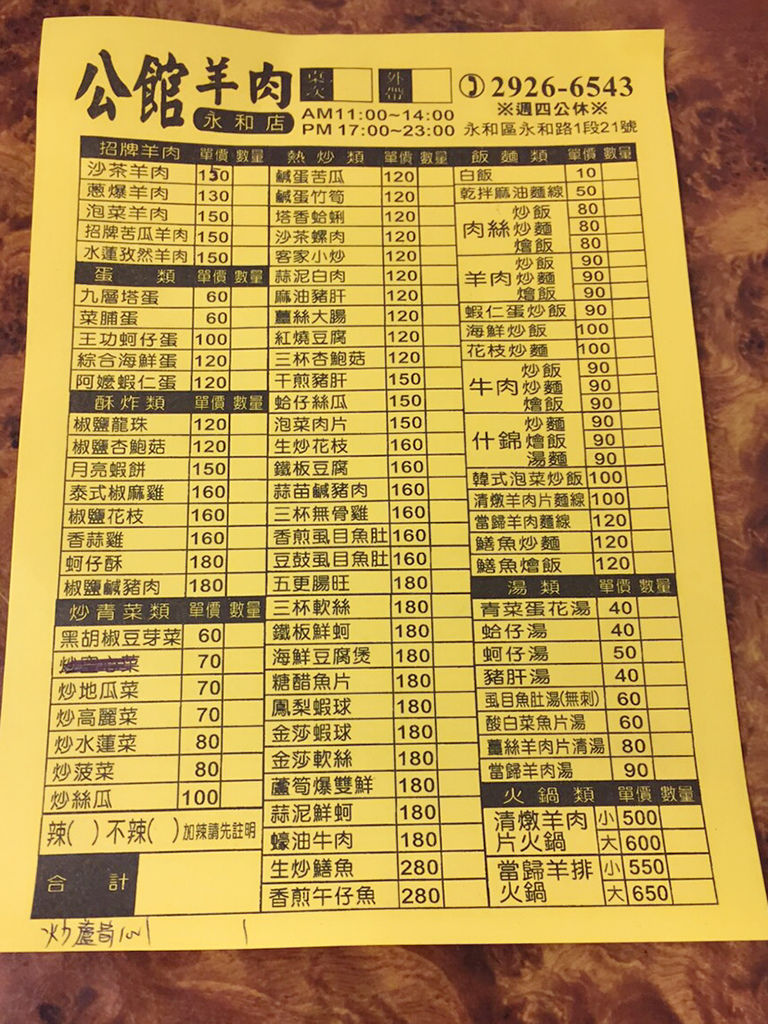 公館羊肉 永和店
桌次 外帶
2926-6543
※週四公休※
AM11:00~14:00
PM 17:00~23:00
永和區永和路1段21號
招牌羊肉 單價 數量
沙茶羊肉 150
蔥爆羊肉 130
泡菜羊肉 150
招牌苦瓜羊肉 150
水蓮孜然羊肉 150
蛋類 單價 數量
九層塔蛋 60
菜脯蛋 60
王功蚵仔蛋 100
綜合海鮮蛋 120
阿嬤蝦仁蛋 120
酥炸類 單價 數量
椒鹽龍珠 120
椒鹽杏鮑菇 120
月亮蝦餅 150
泰式椒麻雞 160
椒鹽花枝 160
香蒜雞 160
蚵仔酥 180
椒鹽鹹豬肉 180
炒青菜類 單價 數量
黑胡椒豆芽菜 60
炒空心菜 70
炒地瓜菜 70
炒高麗菜 70
炒水蓮菜 80
炒菠菜 80
炒絲瓜 100
辣( ) 不辣( ) 加辣請先註明
合計
炒蘆筍
熱炒類 單價 數量
鹹蛋苦瓜 120
鹹蛋竹筍 120
塔香蛤蜊 120
沙茶螺肉 120
客家小炒 120
蒜泥白肉 120
麻油豬肝 120
薑絲大腸 120
紅燒豆腐 120
三杯杏鮑菇 120
干煎豬肝 150
蛤仔絲瓜 150
泡菜肉片 150
生炒花枝 160
鐵板豆腐 160
蒜苗鹹豬肉 160
三杯無骨雞 160
香煎虱目魚肚 160
豆鼓虱目魚肚 160
五更腸旺 180
三杯軟絲 180
鐵板鮮蚵 180
海鮮豆腐煲 180
糖醋魚片 180
鳳梨蝦球 180
金莎蝦球 180
金莎軟絲 180
蘆筍爆雙鮮 180
蒜泥鮮蚵 180
蠔油牛肉 180
生炒鱔魚 280
香煎午仔魚 280
飯麵類 單價 數量
白飯 10
乾拌麻油麵線 50
肉絲 炒飯 80
炒麵 80
燴飯 80
羊肉 炒飯 90
炒麵 90
燴飯 90
蝦仁蛋炒飯 90
海鮮炒飯 100
花枝炒麵 100
牛肉 炒飯 90
炒麵 90
燴飯 90
什錦 炒麵 90
燴飯 90
湯麵 90
韓式泡菜炒飯 100
清燉羊肉片麵線 100
當歸羊肉麵線 120
鱔魚炒麵 120
鱔魚燴飯 120
湯類 單價 數量
青菜蛋花湯 40
蛤仔湯 40
蚵仔湯 50
豬肝湯 40
虱目魚肚湯(無刺) 60
酸白菜魚片湯 60
薑絲羊肉片清湯 80
當歸羊肉湯 90
火鍋類 單價 數量
清燉羊肉片火鍋 小 500
大 600
當歸羊排火鍋 小 550
大 650